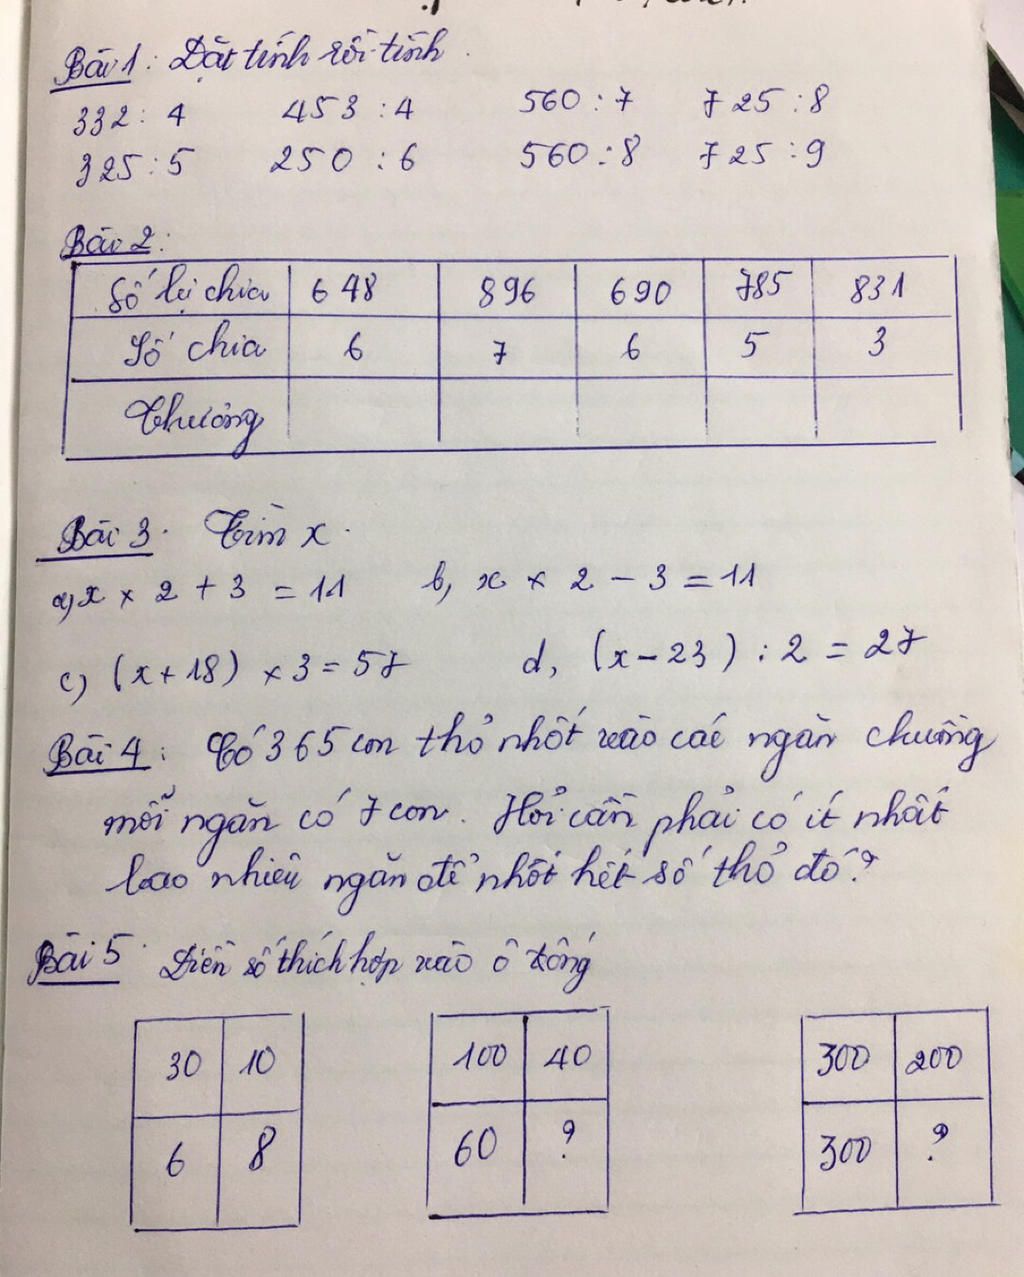 Bài 1: Đặt tính rồi tính.
332 : 4 453 : 4 560 : 7 725 : 8
325 : 5 250 : 6 560 : 8 725 : 9
Bài 2:
Số bị chia 648 896 690 785 831
Số chia 6 7 6 5 3
Thương
Bài 3. Tìm x.
a, x × 2 + 3 = 11 b, x × 2 - 3 = 11
c) (x + 18) × 3 = 57 d, (x - 23) : 2 = 27
Bài 4: Có 365 con thỏ nhốt vào các ngăn chuồng
mỗi ngăn có 7 con. Hỏi cần phải có ít nhất
bao nhiêu ngăn để nhốt hết số thỏ đó?
Bài 5. Điền số thích hợp vào ô trống
30 10 100 40 300 200
6 8 60 ? 300 ?